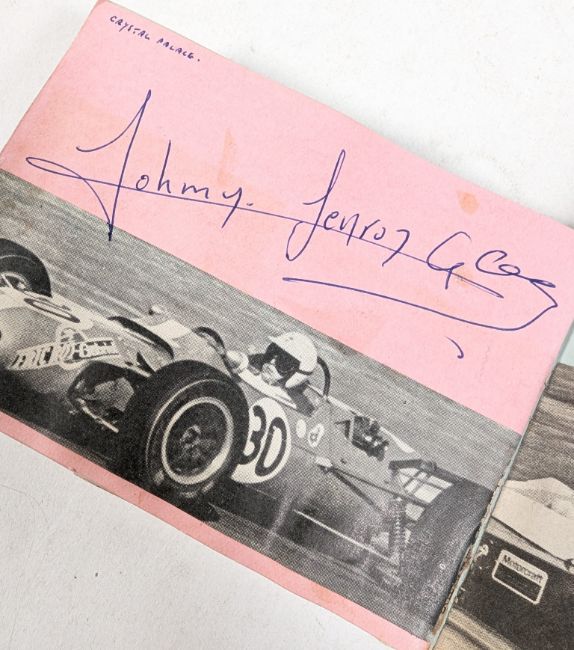 CRYSTAL PALACE.
Johnny. Servoz
30
Motorcraft